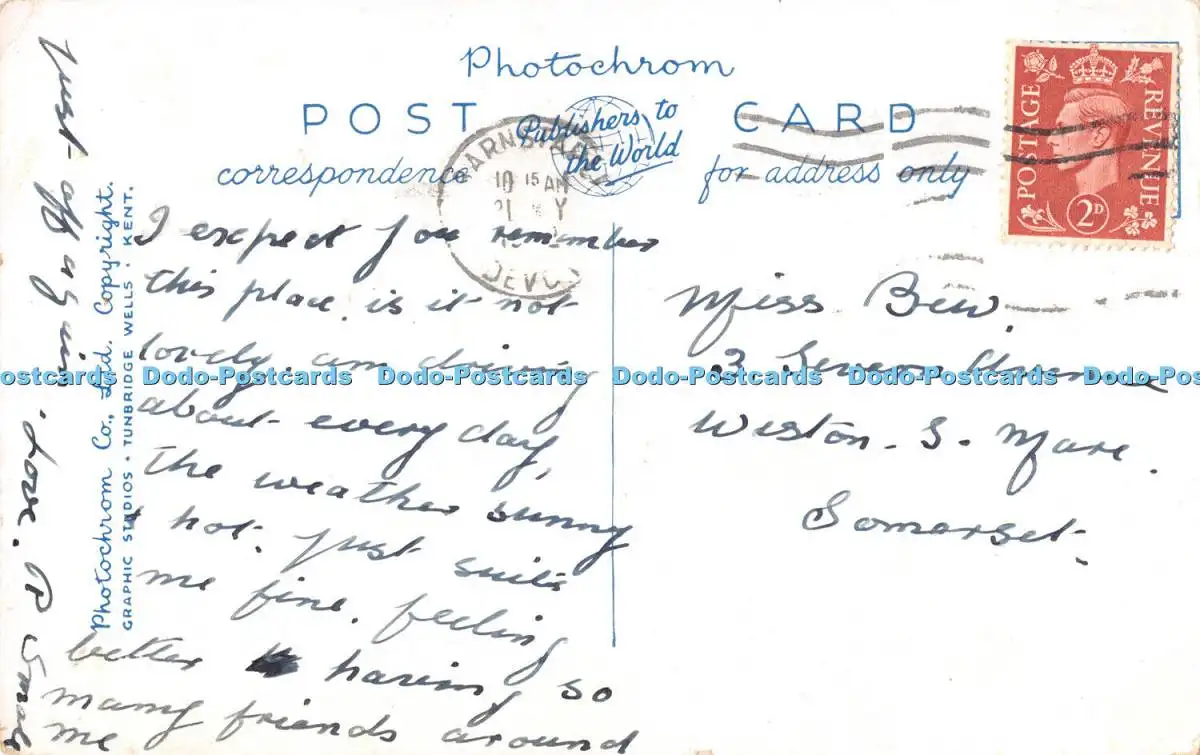 Photochrom
POST CARD
Publishers to
the World
correspondence for address only
BARNSTAPLE
10 15 AM
DEVON
POSTAGE REVENUE
2D
I expect you remember
this place. is it not
lovely. am driving
about every day,
the weather sunny
& hot. just suits
me fine. feeling
better having so
many friends around
me
just off again
. love.
Miss Bew.
3 Severn Avenue
Weston-S-Mare.
Somerset.
Photochrom Co., Ltd. Copyright.
GRAPHIC STUDIOS · TUNBRIDGE WELLS · KENT.
Dodo-Postcards Dodo-Postcards Dodo-Postcards Dodo-Postcards Dodo-Postcards